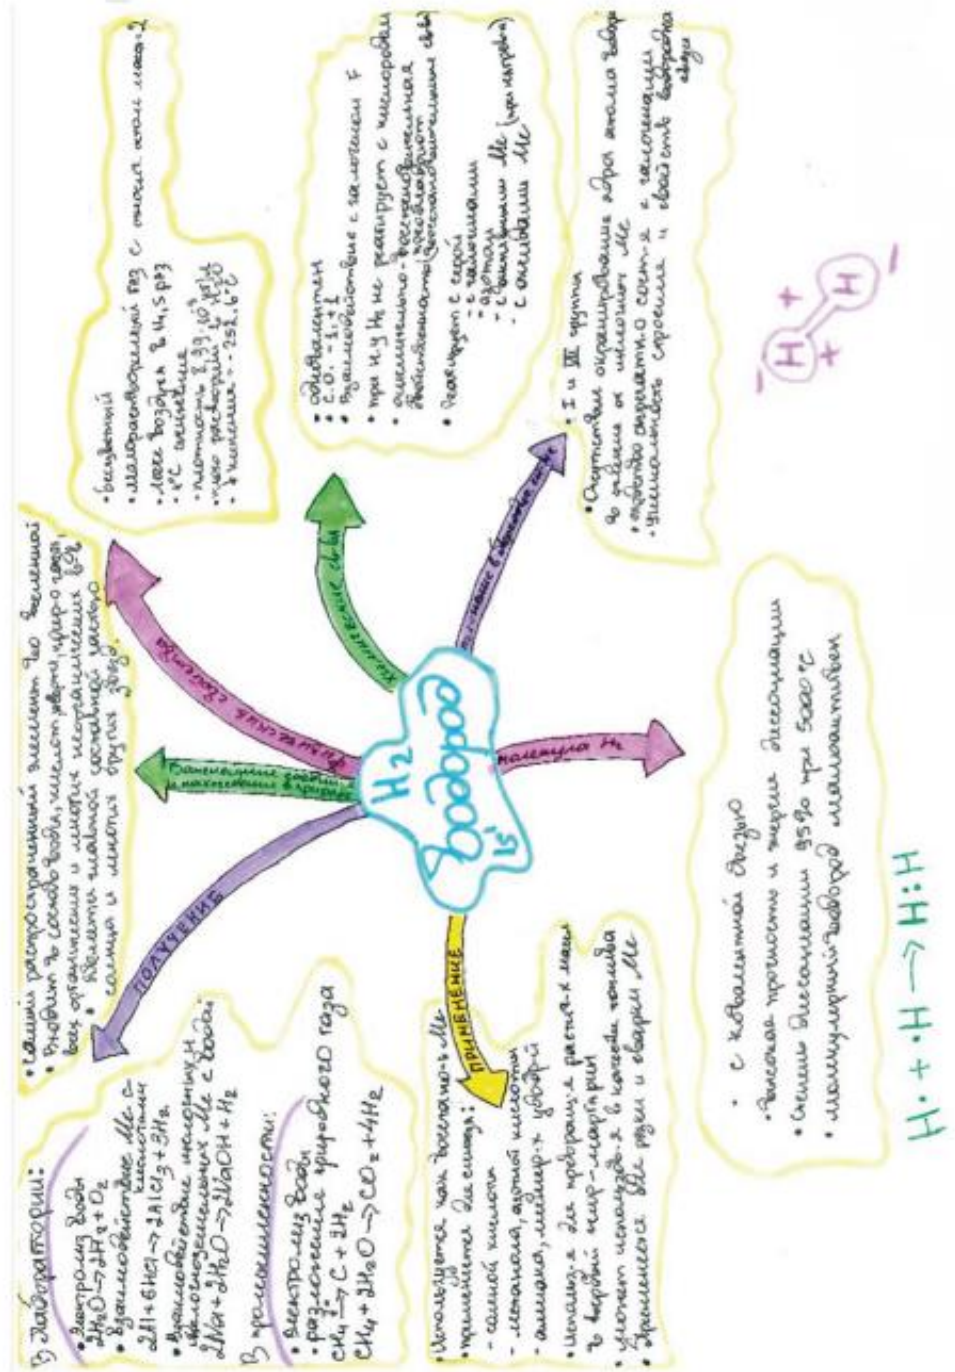 H₂
водород
1s¹
ПОЛУЧЕНИЕ
В лаборатории:
• Электролиз воды
2H₂O→2H₂+O₂
• Взаимодействие Ме с
кислотами
2Al+6HCl→2AlCl₃+3H₂
• Взаимодействие щелочных и
щелочноземельных Ме с водой
2Na+2H₂O→2NaOH+H₂
В промышленности:
• Электролиз воды
• разложение природного газа
CH₄→C+2H₂
CH₄+2H₂O→CO₂+4H₂
Важнейшие соедин.
и нахождение в природе
• самый распространенный элемент во вселенной
• Входит в состав воды, кислот,
всех органических и многих неорганических
• Является главной составной частью
солнца и многих других звезд.
физические свойства
• бесцветный
• малорастворимый газ с
• легче воздуха в 14,5 раз
•
• плотность 8,99·10
• растворим в H₂O
• t кипения = -252,6°C
химические св-ва
• одновалентен
• С.О. -1,+1
• Взаимодействие с галогеном F
• при н.у H₂ не реагирует с кислородом
• окислительно-восстановительная
двойственность (восстановительные св-ва)
• реагирует с серой
- с галогенами
- азотом
- с активными Ме (при нагрев.)
- с оксидами Ме
• I и VII группы
• Отсутствие экранирования ядра атома
в отличие от щелочных Ме
• сходство с галогенами
• уникальность строения и свойств водорода
молекула H₂
• с ковалентной связью
• Высокая прочность и энергия диссоциации
• Степень диссоциации 95% при 5000°C
• молекулярный водород малоактивен
H· + ·H → H:H
- + H
+ H -
ПРИМЕНЕНИЕ
• Используется как восстан-ь Ме
• применяется для синтеза:
- соляной кислоты
- метанола, кислоты
- аммиака, удобрений
• Использ-я для превращ-я растит-х масел
в твердый жир-маргарин
• может использов-я в качестве топлива
• резки и сварки Ме